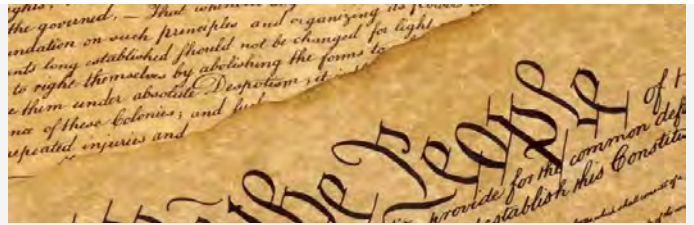 the governed, — That when
ndation on such principles and organizing its powers
nts long established should not be changed for light
to right themselves by abolishing the forms to
e them under absolute Despotism, it
na of these Colonies; and such
epeated injuries and
the People of
provide for the common def
establish this Constitu